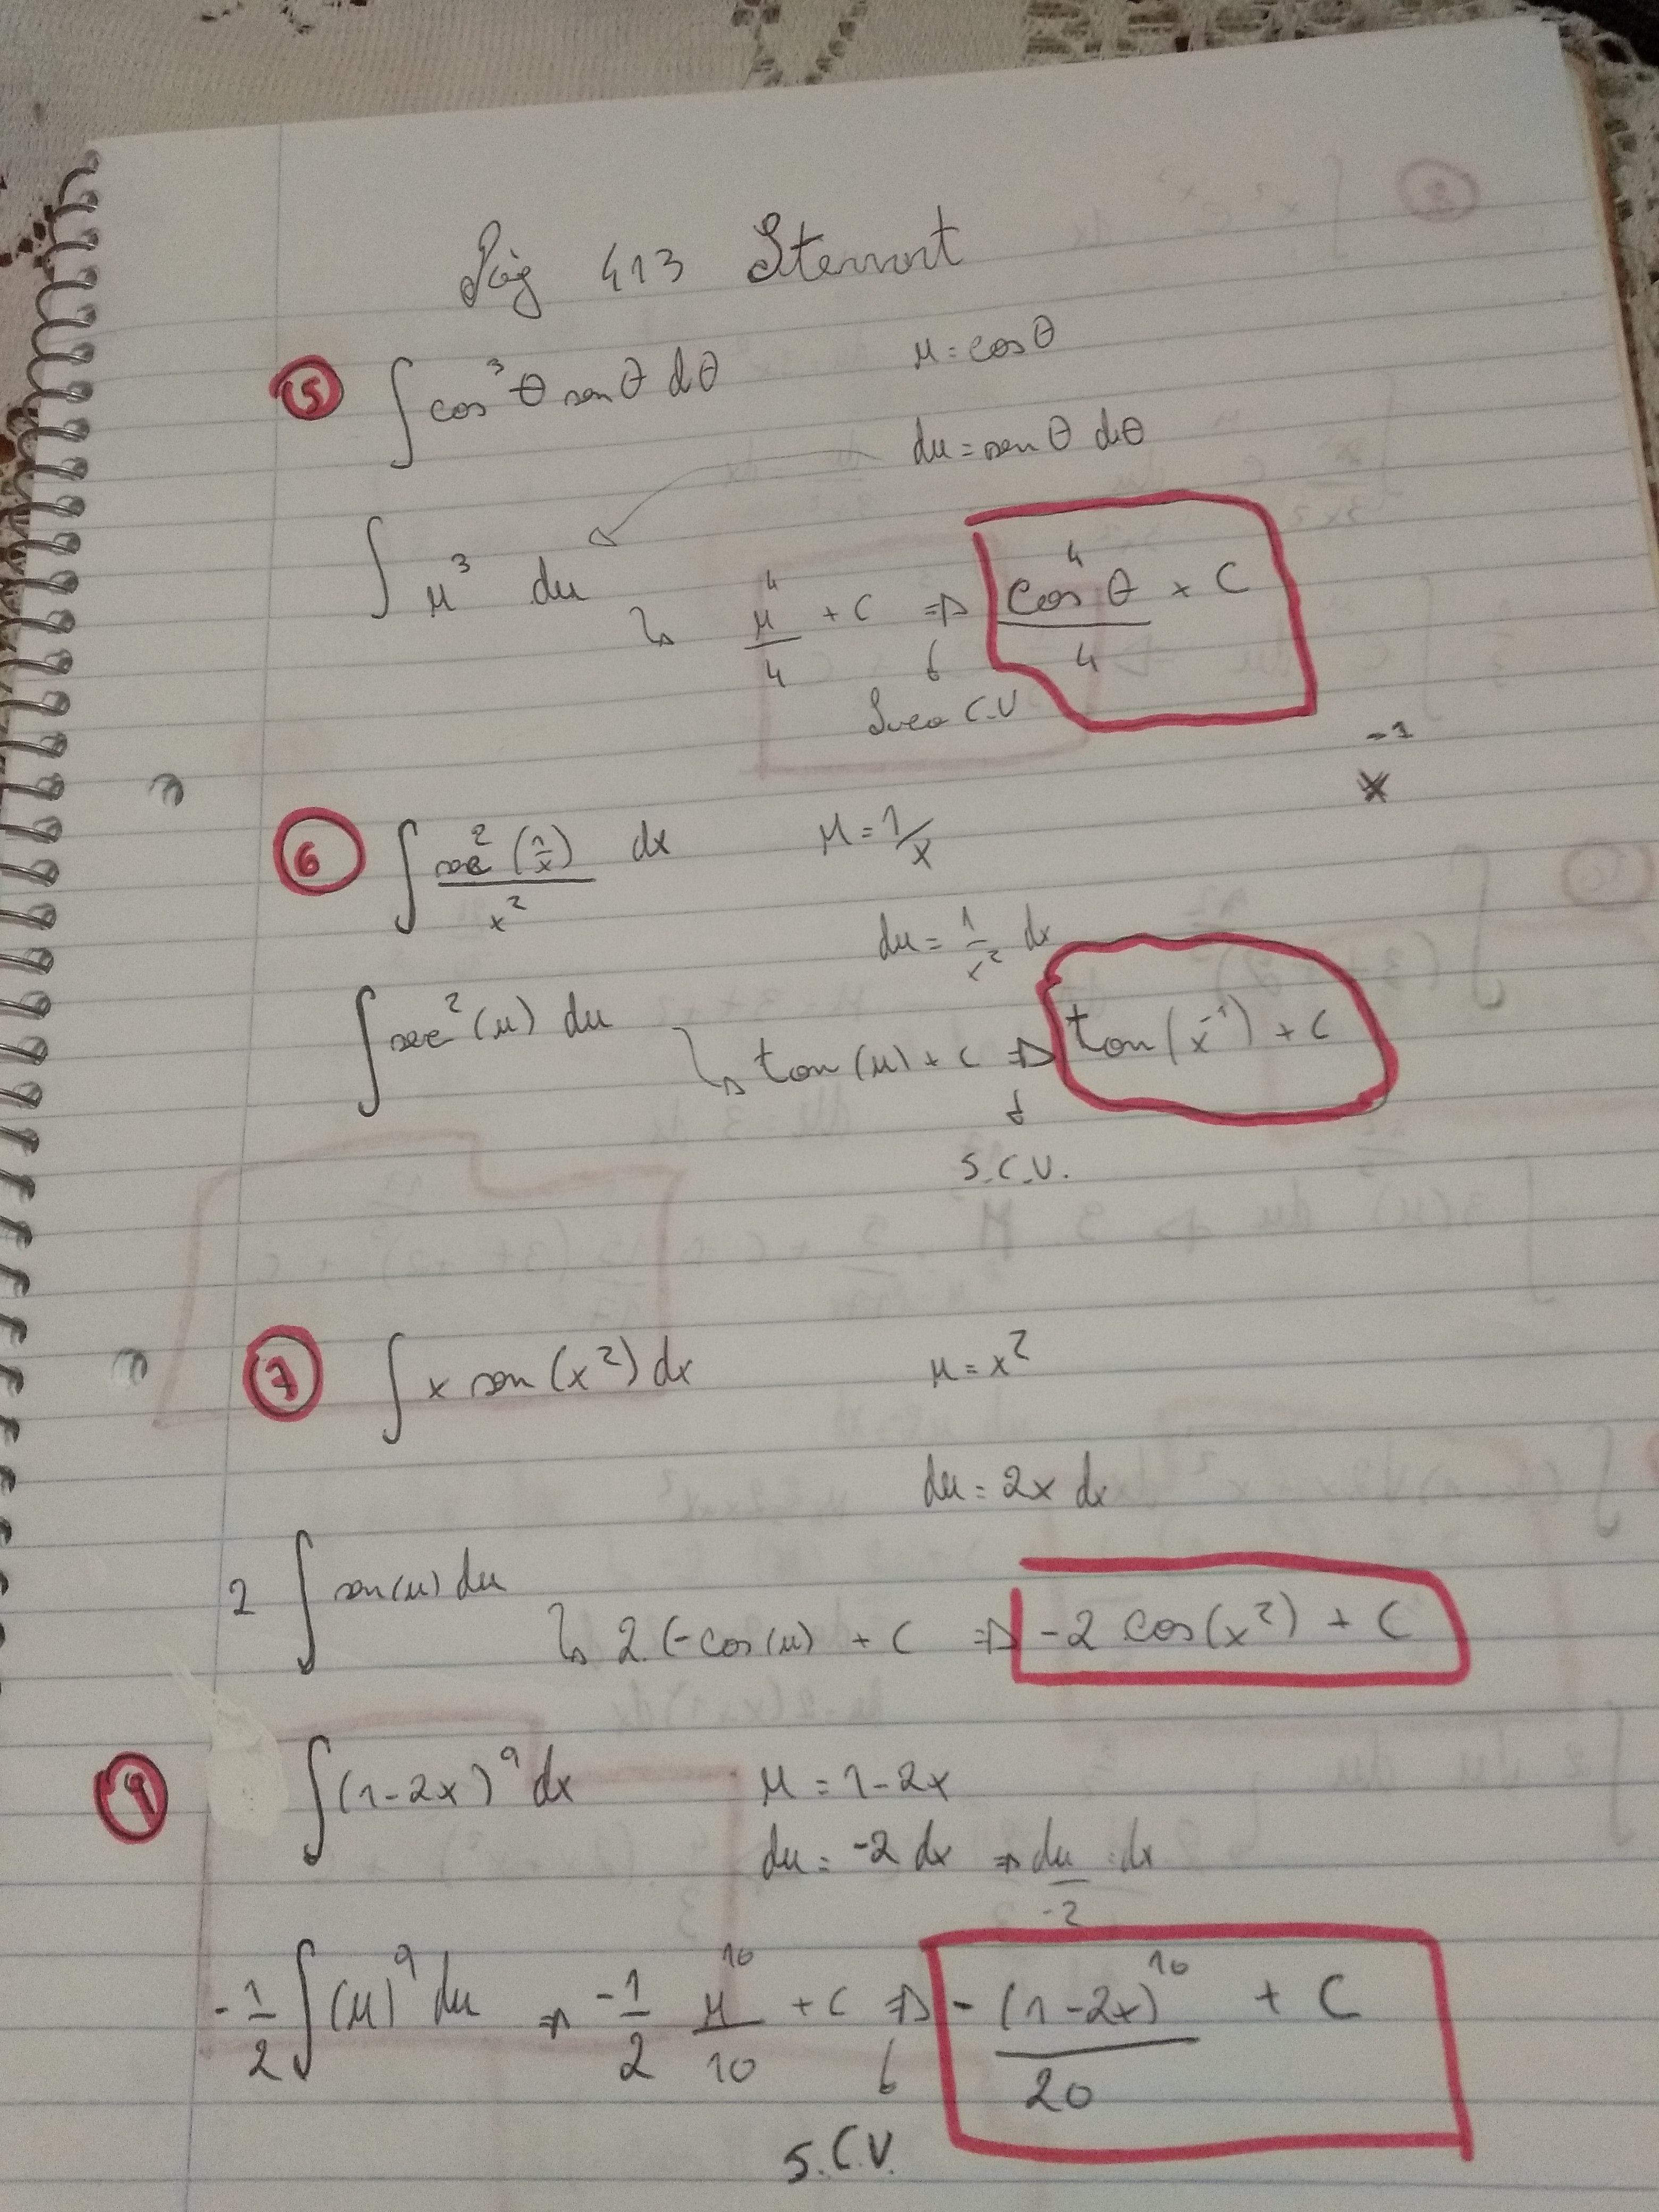 Pág 413 Stewart
5 ∫ cos³ θ sen θ dθ μ = cos θ
du = sen θ dθ
∫ μ³ du ↳ μ⁴/4 + C ⇒ cos⁴ θ/4 + C
C.V
-1
x
6 ∫ sec² (1/x)/x² dx μ = 1/x
du = 1/x² dx
∫ sec² (μ) du ↳ tan (μ) + C ⇒ tan (x⁻¹) + C
S.C.V.
7 ∫ x sen (x²) dx μ = x²
du = 2x dx
2 ∫ sen (μ) du ↳ 2.(-cos (μ) + C ⇒ -2 cos (x²) + C
9 ∫ (1-2x)⁹ dx μ = 1-2x
du = -2 dx ⇒ du/-2 = dx
-1/2 ∫ (μ)⁹ du ⇒ -1/2 μ¹⁰/10 + C ⇒ - (1-2x)¹⁰/20 + C
S.C.V.